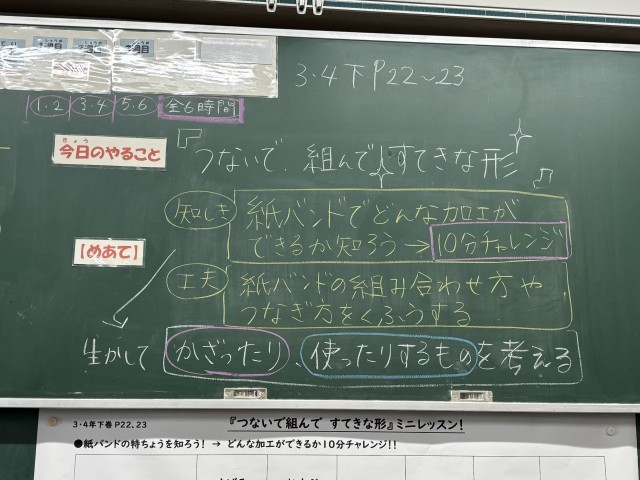 3・4下 P22～23
1.2 3.4 5.6 全6時間
きょう
今日のやること
『つないで、組んで、すてきな形』
知しき 紙バンドでどんな加工が
できるか知ろう→10分チャレンジ
【めあて】
工夫 紙バンドの組み合わせ方や
つなぎ方をくふうする
生かして かざったり、使ったりするものを考える
3・4年下巻 P22、23
『つないで組んで すてきな形』ミニレッスン！
●紙バンドの特ちょうを知ろう！ → どんな加工ができるか10分チャレンジ！！